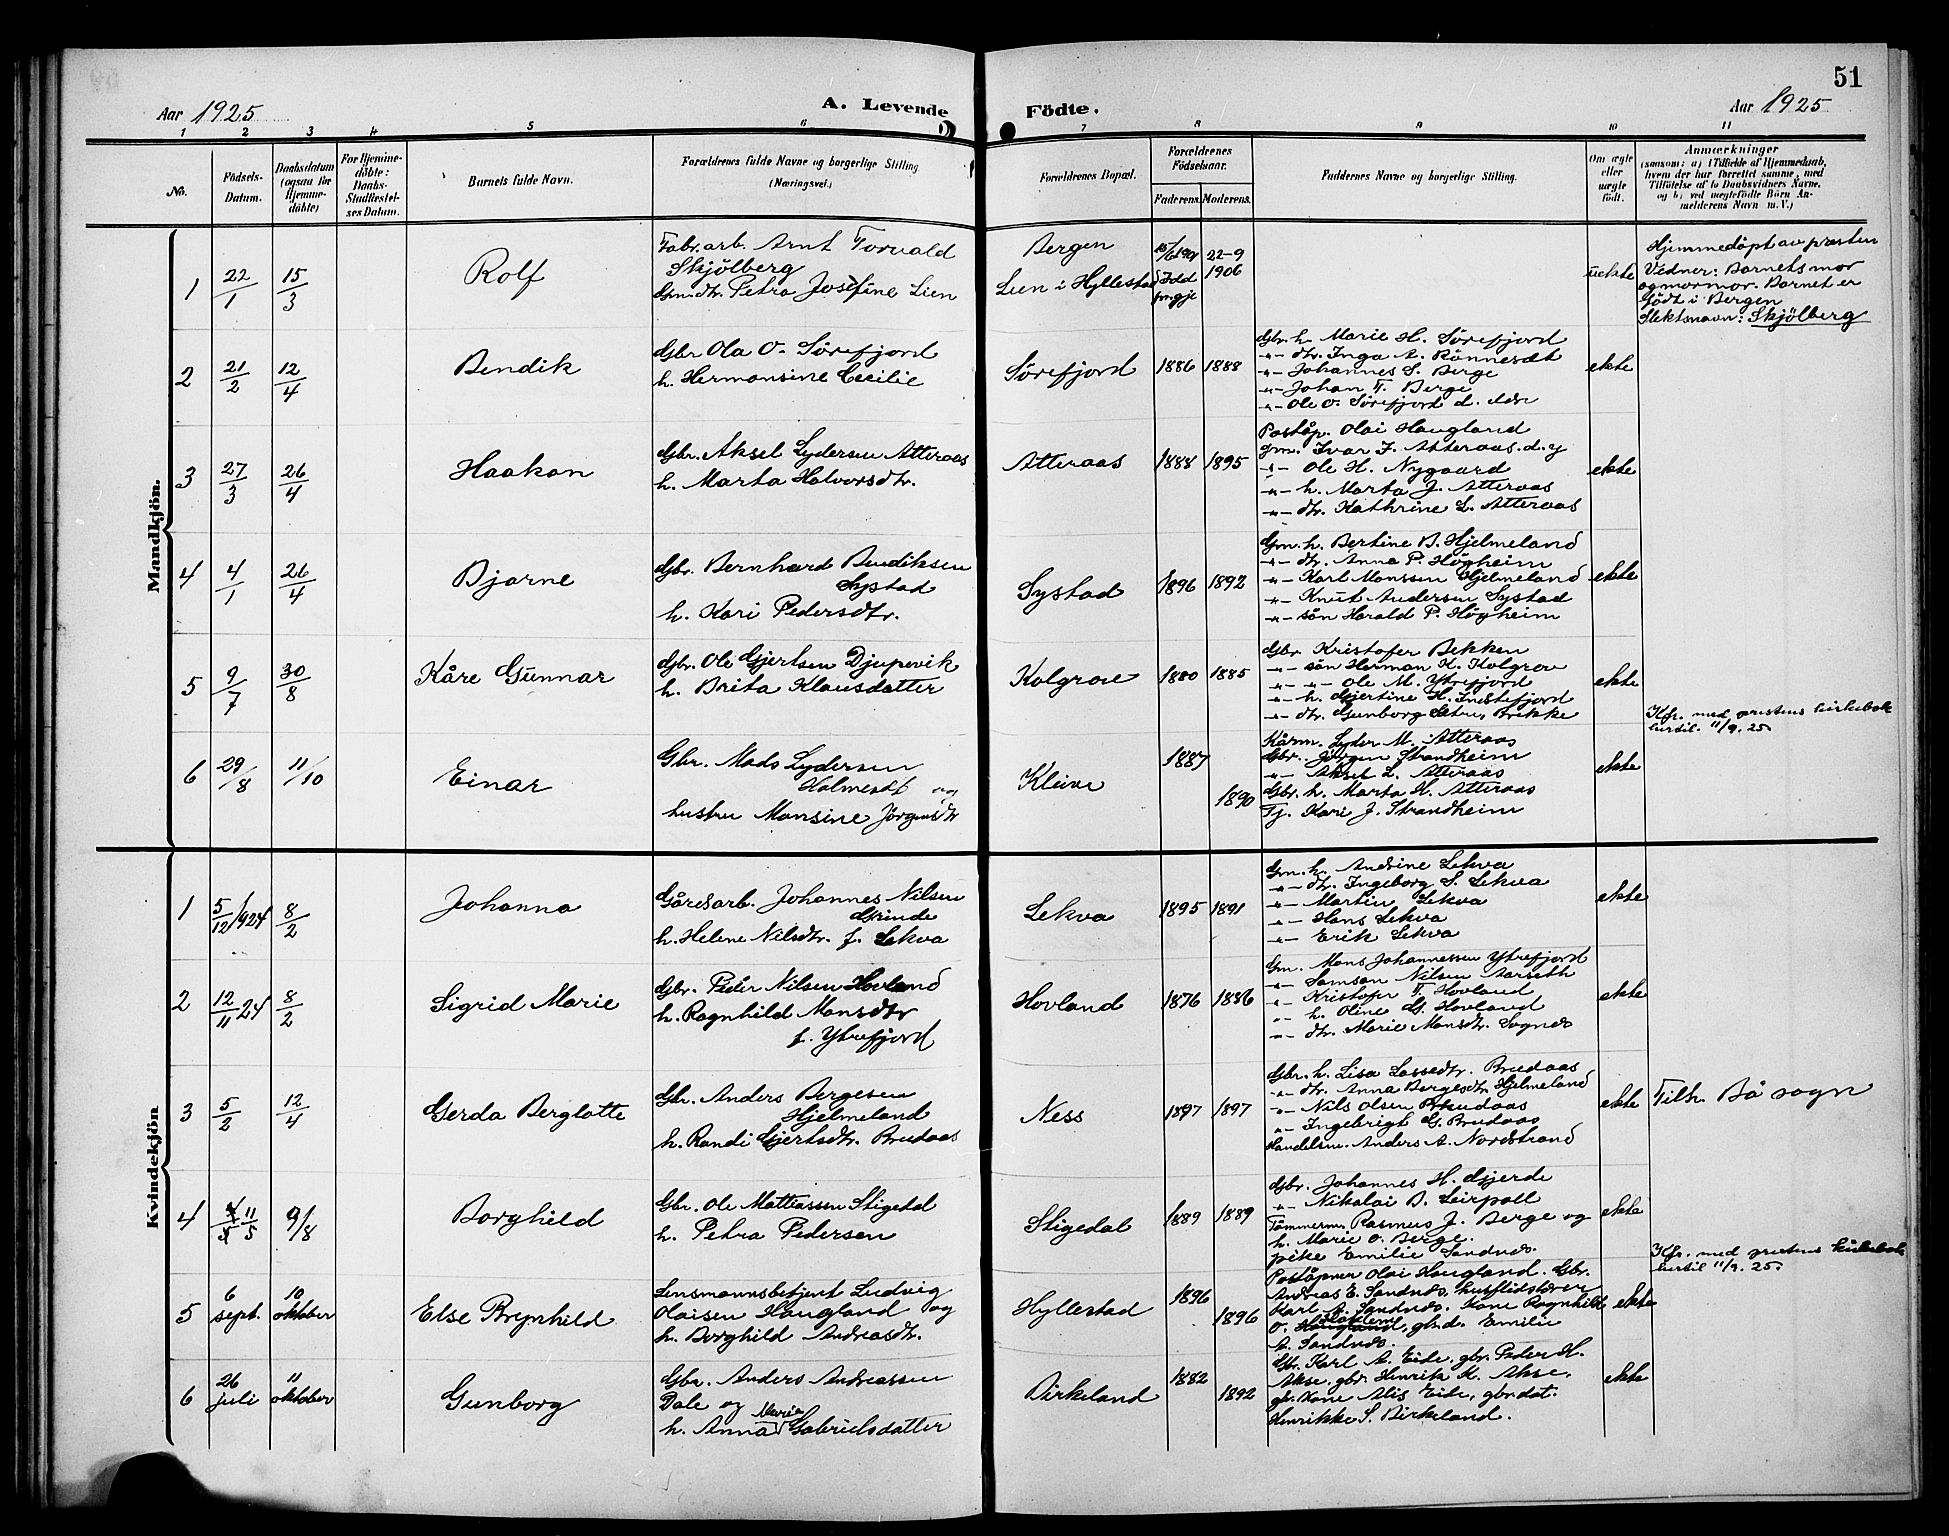 51
Aar 1925
A. Levende Födte.
Aar 1925
1 2 3 4 5 6 7 8 9 10 11
No.
Födsels-
Datum.
Daabsdatum
(ogsaa for
Hjemme-
döbte)
For Hjemme-
döbte:
Daabs-
Stadfæstel-
ses Datum.
Barnets fulde Navn.
Forældrenes fulde Navne og borgerlige Stilling
(Næringsvei.)
Forældrenes Bopæl.
Forældrenes
Födselsaar.
Faderens. Moderens.
Faddernes Navne og borgerlige Stilling.
Om ægte
eller
uægte
født.
Anmærkninger
(saasom: a) i Tilfælde af Hjemmedaab,
hvem der har forrettet samme, med
Tilföielse af to Daabsvidners Navne,
og b) ved uægtefødte Börn An-
melderens Navn m. V.)
Mandkjön.
1
22/1
15/3
Rolf
Fabr.arb. Arnt Torvald
Skjölberg
Gm.dtr. Petra Josefine Lien
Bergen
Lien i Hyllestad
22-9
1906
uekte
Hjemmedöpt av presten
Vidner: Barnets mor
og mormor. Barnet er
födt i Bergen
Slektsnavn: Skjölberg
2
21/2
12/4
Bendik
Gbr Ola O. Sörefjord
h. Hermansine Cecilie
Sörefjord
1886
1888
Gbr. h. Marie H. Sörefjord
-"- dtr. Inga A. Rönneset
-"- Johannes S. Berge
-"- Johan T. Berge
-"- Ole O. Sörefjord d. eldre
ekte
3
27/3
26/4
Haakon
Gbr. Aksel Lydersen Atteraas
h. Marta Halvorsdtr.
Atteraas
1888
1895
Poståp. Olai Haugland
gm. Ivar J. Atteraas d.y
-"- Ole H. Nygaard
-"- h. Marta J. Atteraas
-"- dtr. Kathrine L. Atteraas
ekte
4
4/1
26/4
Bjarne
Gbr. Bernhard Bendiksen
Systad
h. Kari Pedersdtr.
Systad
1896
1892
Gm. h. Bertine B. Hjelmeland
-"- dtr. Anna P. Högheim
-"- Karl Monssen Hjelmeland
-"- Knut Andersen Systad
-"- sön Harald P. Högheim
ekte
5
9/7
30/8
Kåre Gunnar
Gbr. Ole Gjertsen Djupevik
h. Brita Klausdatter
Kolgrov
1880
1885
Gbr Kristofer Bekken
-"- sön Herman K. Kolgrov
-"- -"- Ole M. Ytrefjord
-"- h. Gjertine H. Indrefjord
-"- dtr. Gunborg Sætre, Brekke
ekte
Kfr. med prestens kirkebok
hertil 11/9. 25
6
29/8
11/10
Einar
Gbr. Mads Lydersen
Holmeset og
hustru Monsine Jörgensdtr
Kleive
1887
1890
Kårm. Lyder M. Atteraas
Gbr. Jörgen Strandheim
-"- Aksel L. Atteraas
Gbr. h. Marta H. Atteraas
Tj. Kari J. Strandheim
ekte
Kvindekjön
1
5/12 1924
8/2
Johanna
Gårdsarb. Johannes Nilsen
Grinde
h. Helene Nilsdtr. f. Lekva
Lekva
1895
1891
Gm. h. Andrine Lekva
-"- dtr. Ingeborg S. Lekva
-"- Martin Lekva
-"- Hans Lekva
-"- Erik Lekva
ekte
2
12/11 24
8/2
Sigrid Marie
Gbr. Peder Nilsen Hovland
h. Ragnhild Monsdtr
f. Ytrefjord
Hovland
1876
1886
Gm. Mons Johannessen Ytrefjord
-"- Samson Nilsen Aarseth
-"- Kristofer T. Hovland
-"- h. Oline G. Hovland
-"- dtr. Marie Monsdtr. Sognes
ekte
3
5/2
12/4
Gerda Berglotte
Gbr. Anders Bergesen
Hjelmeland
h. Randi Gjertsdtr. Brudaas
Ness
1897
1897
Gbr. h. Lisa Lassedtr. Brudaas
-"- dtr. Anna Bergesdtr Hjelmeland
-"- Nils Olsen Brudaas
-"- Ingebrigt G. Brudaas
Handelsm. Anders A. Nordstrand
ekte
Tilh. Bö sogn
4
11/5
9/8
Borghild
Gbr. Ole Mattiassen Stigedal
h. Petra Pedersen
Stigedal
1889
1889
Gbr. Johannes H. Gjerde
-"- Nikolai B. Leirpoll
Tömmerm. Rasmus J. Berge og
h. Marie O. Berge.
pike Emilie Sandnes.
ekte
Kfr. med prestens kirkebok
hertil 11/9. 25
5
6
sept.
10
oktober
Else Brynhild
Lensmannsbetjent Ludvig
Olaisen Haugland og
h. Borghild Andreasdtr.
Hyllestad
1896
1896
Poståpner Olai Haugland. Gbr.
Andreas E. Sandnes, husflidslærer
Karl A. Sandnes. Kone Ragnhild
O. Haugland, gbr.d. Emilie
A. Sandnes.
ekte
6
26
juli
11
oktober
Gunborg
Gbr. Anders Andreassen
Dale og
h. Anna Maria Gabrielsdatter
Birkeland
1882
1892
Gbr. Karl A. Eide, gbr. Peder H.
Akse, gbr. Henrik K. Akse,
gbr. Kone Alis Eide, gbr.dat.
Henrikke S. Birkeland.
ekte